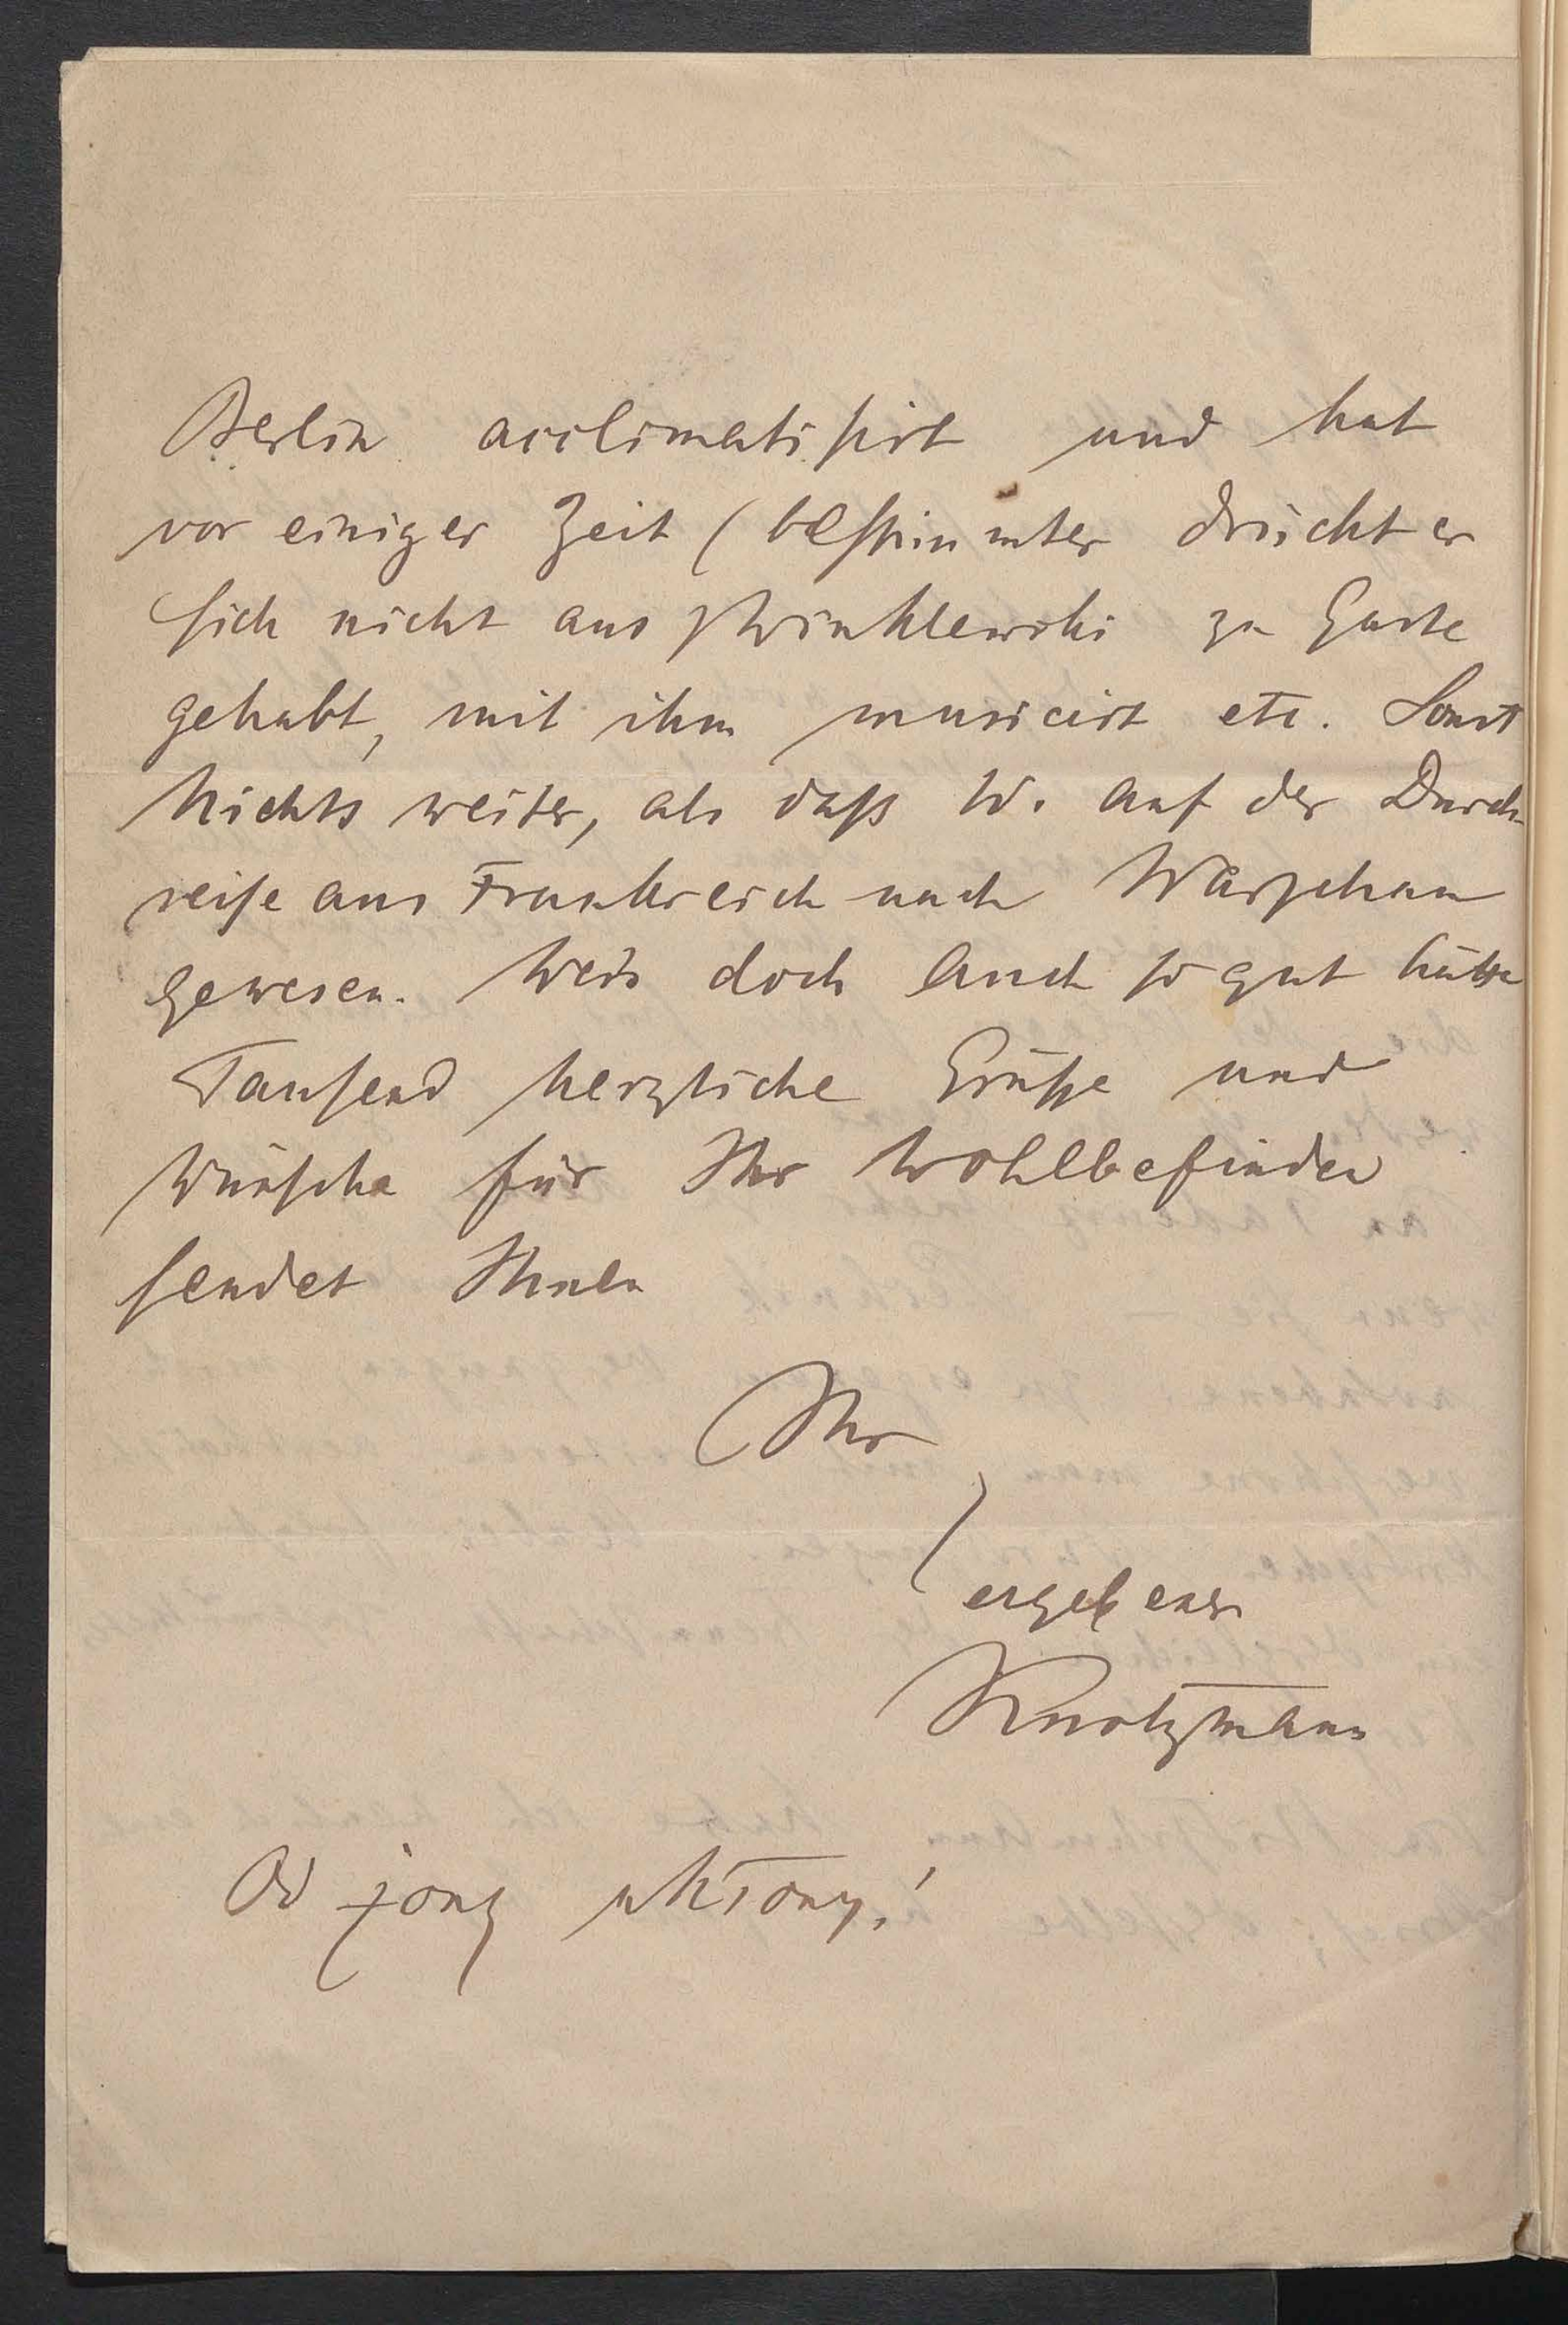 Berlin acclimatisirt und hat
vor einiger Zeit (bestimmter drückt er
sich nicht aus) Winklewski zu Gaste
gehabt, mit ihm musicirt etc. Sonst
Nichts weiter, als daß W. auf der Durch-
reise aus Frankreich nach Warschau
gewesen. Wers doch auch so gut hätte
Tausend herzliche Grüße und
Wünsche für Ihr Wohlbefinden
sendet Ihnen
Ihr
ergebener
Knotzmann
Od żony ukłony!